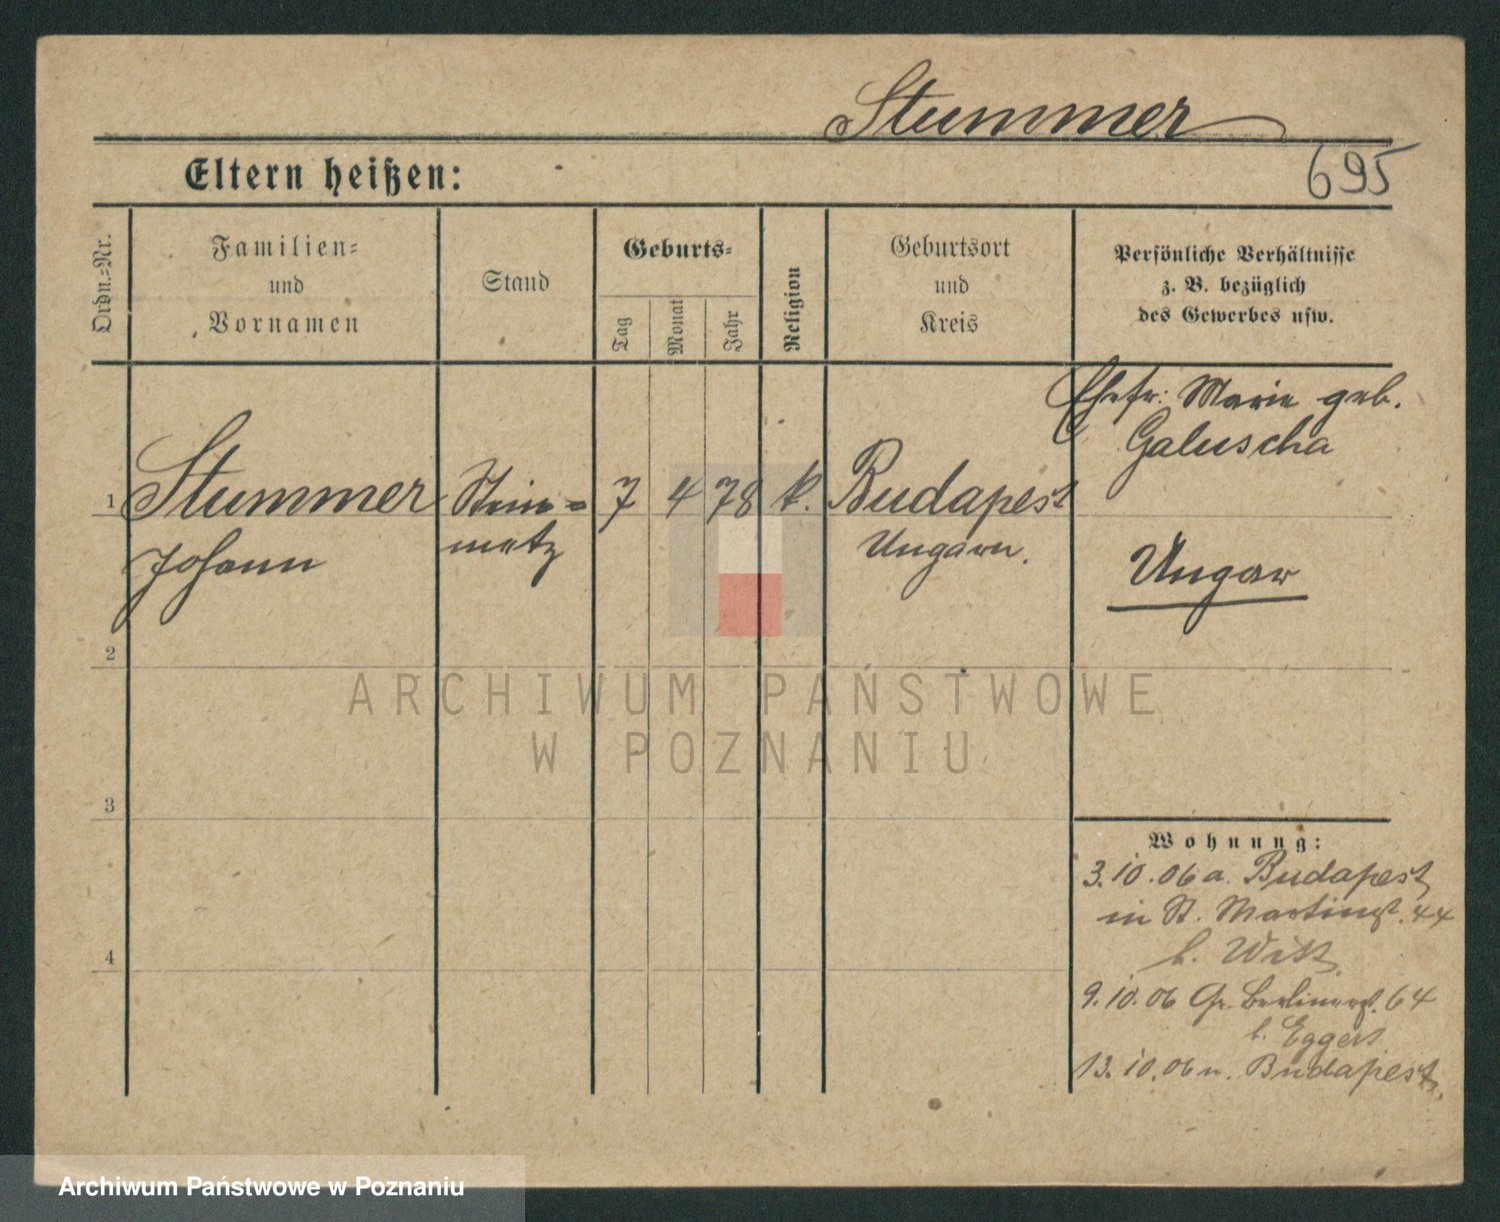 Stummer
695
Eltern heißen:
Ordn.-Nr.
Familien-
und
Vornamen
Stand
Geburts-
Tag
Monat
Jahr
Religion
Geburtsort
und
Kreis
Persönliche Verhältnisse
z. B. bezüglich
des Gewerbes usw.
Ehefr: Marie geb.
Galuscha
1 Stummer Stein- 7 4 78 k. Budapest
Johann metz Ungarn.
Ungar
2
ARCHIWUM PAŃSTWOWE
W POZNANIU
3
Wohnung:
3.10.06 a. Budapest
in St. Martinst. 44
b. Witt
4
9.10.06 Gr. Berlinerst. 64
b. Eggert
13.10.06 n. Budapest.
Archiwum Państwowe w Poznaniu